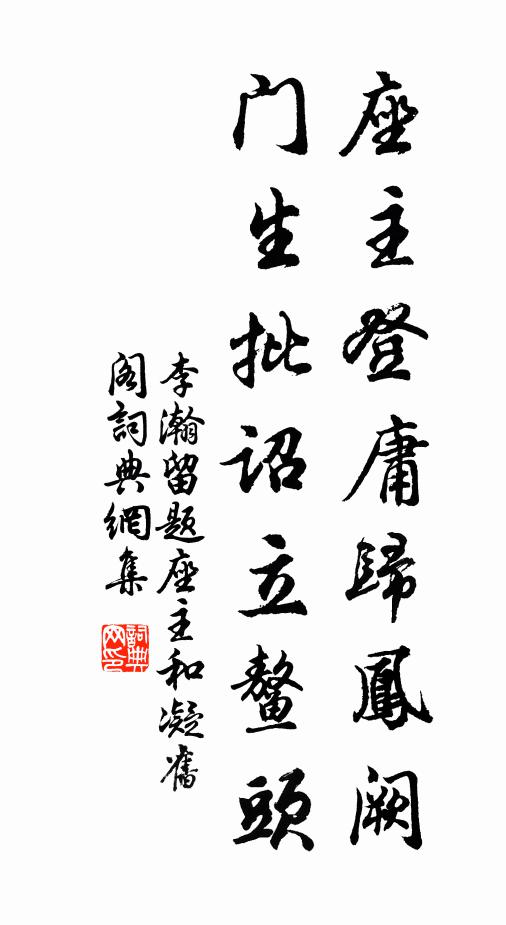 座主登庸歸鳳闕
门生批诏立鰲頭
李瀚留题座主和凝舊
阁詞典網集
詞典
网印